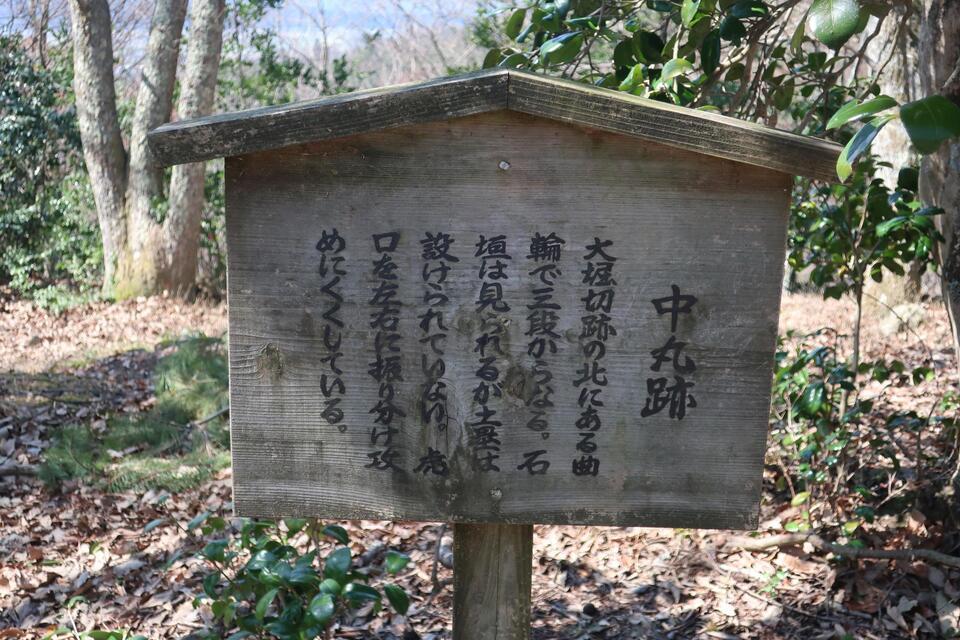 中丸跡
大堀切跡の北にある曲
輪で三段からなる。石
垣は見られるが土塁は
設けられていない。虎
口を左右に振り分け攻
めにくくしている。